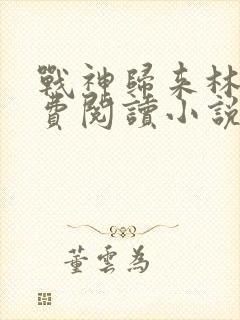 戰神歸來林
費閱讀小說
董雲為